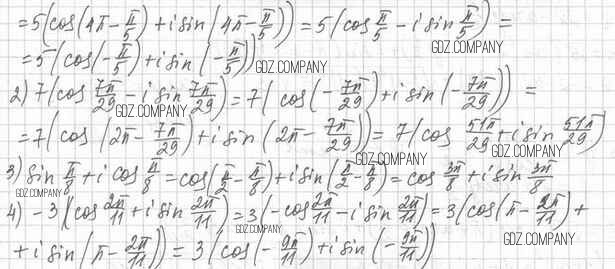 = 5(cos(4π - π/5) + i sin(4π - π/5)) = 5(cos π/5 - i sin π/5) =
GDZ.COMPANY
= 5(cos(-π/5) + i sin(-π/5))
GDZ.COMPANY
2) 7(cos 7π/29 - i sin 7π/29) = 7(cos(-7π/29) + i sin(-7π/29)) =
GDZ.COMPANY
= 7(cos(2π - 7π/29) + i sin(2π - 7π/29)) = 7(cos 51π/29 + i sin 51π/29)
GDZ.COMPANY
GDZ.COMPANY
3) sin π/8 + i cos π/8 = cos(π/2 - π/8) + i sin(π/2 - π/8) = cos 3π/8 + i sin 3π/8
GDZ.COMPANY
4) -3(cos 2π/11 + i sin 2π/11) = 3(-cos 2π/11 - i sin 2π/11) = 3(cos(π - 2π/11) +
GDZ.COMPANY
+ i sin(π - 2π/11)) = 3(cos(-9π/11) + i sin(-9π/11))
GDZ.COMPANY
GDZ.COMPANY